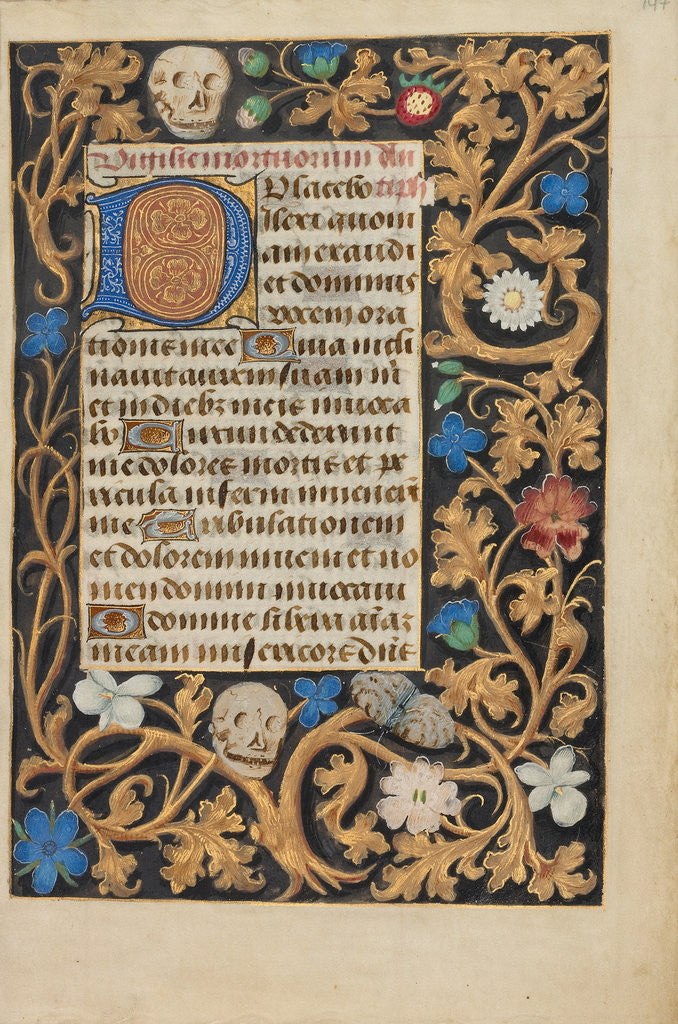 147
Vigilie mortuorum An
Placebo tiph
Ilexi quoni
am exaudi
et dominus
vocem ora
tionis mee Quia incli
nauit aurem suam m̄
et in diebz meis inuoca
bo Circundederunt
me dolores mortis et pe
ricula inferni inueneru͞t
me Tribulationem
et dolorem inueni et no
men domini inuocaui
O domine libera ai͞az
meam misericors dn͞s